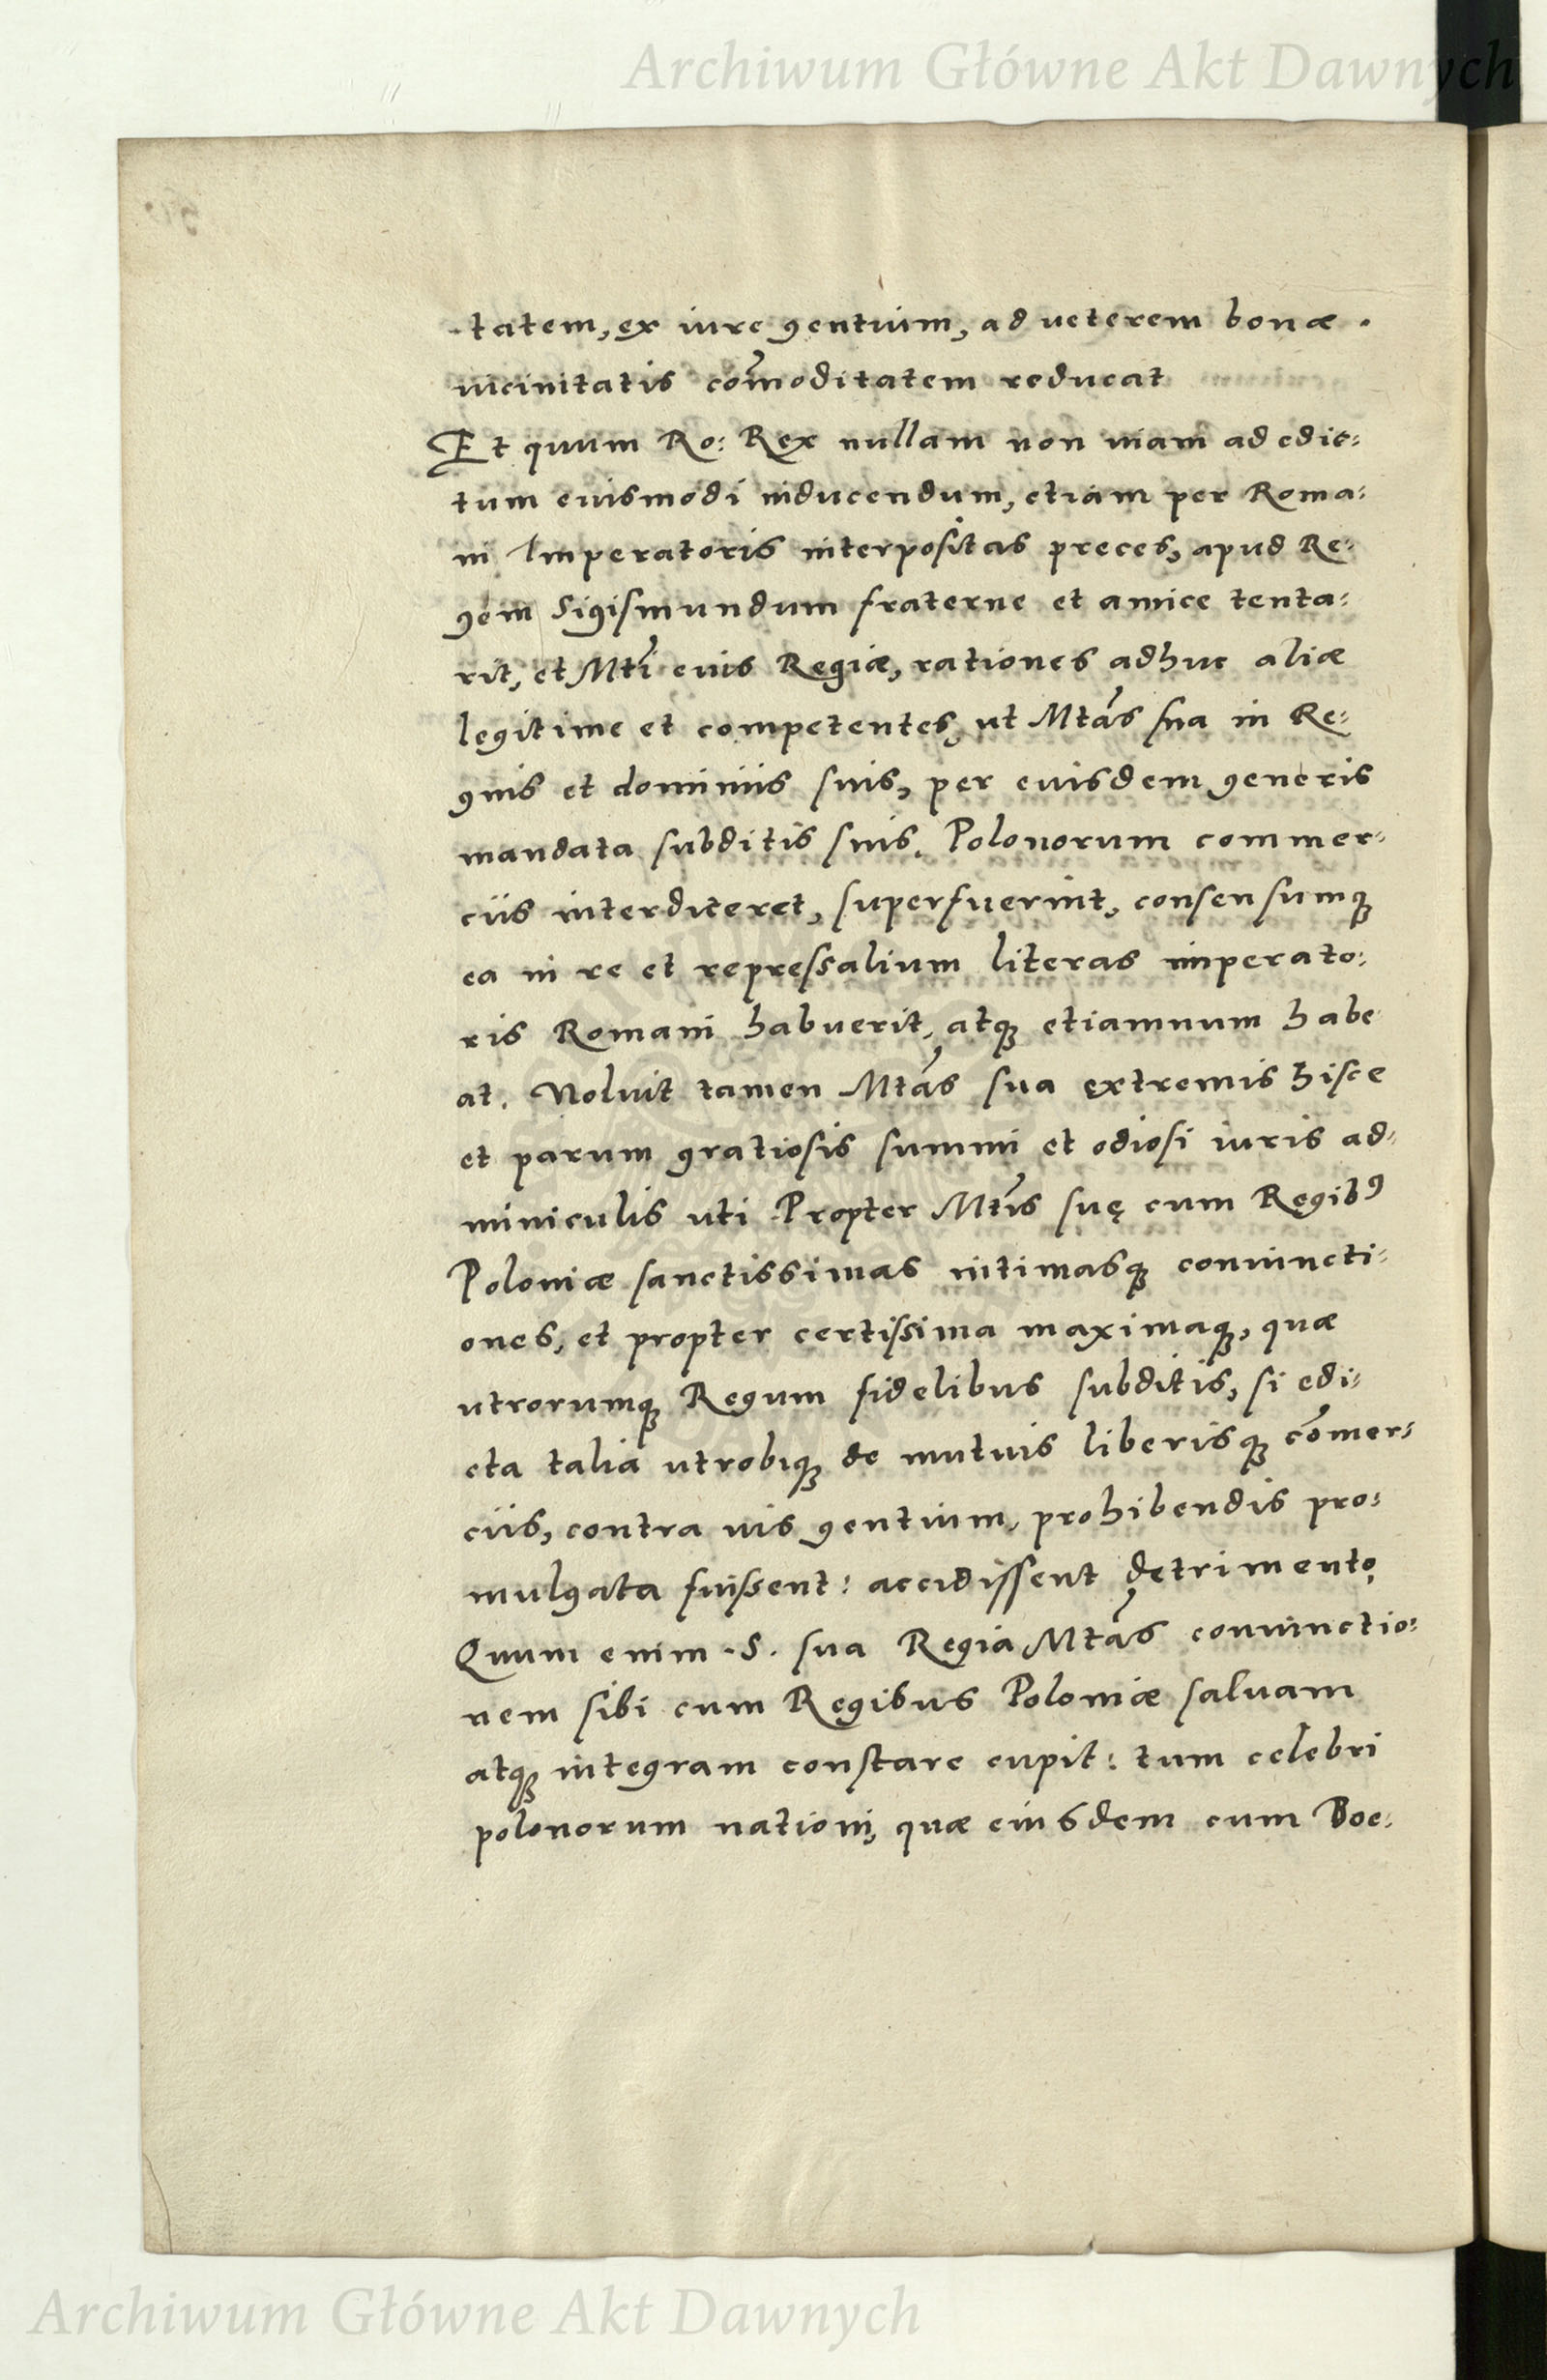 Archiwum Główne Akt Dawnych
-tatem, ex iure gentium, ad veterem bonæ.
vicinitatis com̄oditatem reducat
Et quum Ro: Rex nullam non viam ad edic:
tum eiusmodi inducendum, etiam per Roma:
ni Imperatoris interpositas preces, apud Re:
gem Sigismundum fraterne et amice tenta:
rit, et Mti eius Regiæ, rationes adhuc aliæ
legitime et competentes, ut Mtas sua in Re:
gnis et dominiis suis, per eiusdem generis
mandata subditis suis, Polonorum commer:
ciis interdiceret, superfuerint, consensumq;
ea in re et repressalium literas imperato:
ris Romani habuerit, atq; etiamnum habe
at. Noluit tamen Mtas sua extremis hisce
et parum gratiosis summi et odiosi iuris ad:
miniculis uti. Propter Mtis suę cum Regib9
Poloniæ sanctissimas intimasq; coniuncti:
ones, et propter certissima maximaq;, quæ
utrorumq; Regum fidelibus subditis, si edi:
cta talia utrobiq; de mutuis liberisq; com̄er:
ciis, contra ius gentium, prohibendis pro:
mulgata fuissent: accidissent detrimento,
Quum enim .S. sua Regia Mtas coniunctio:
nem sibi cum Regibus Poloniæ salvam
atq; integram constare cupit: tum celebri
polonorum nationi, quæ eiusdem cum Boe:
Archiwum Główne Akt Dawnych